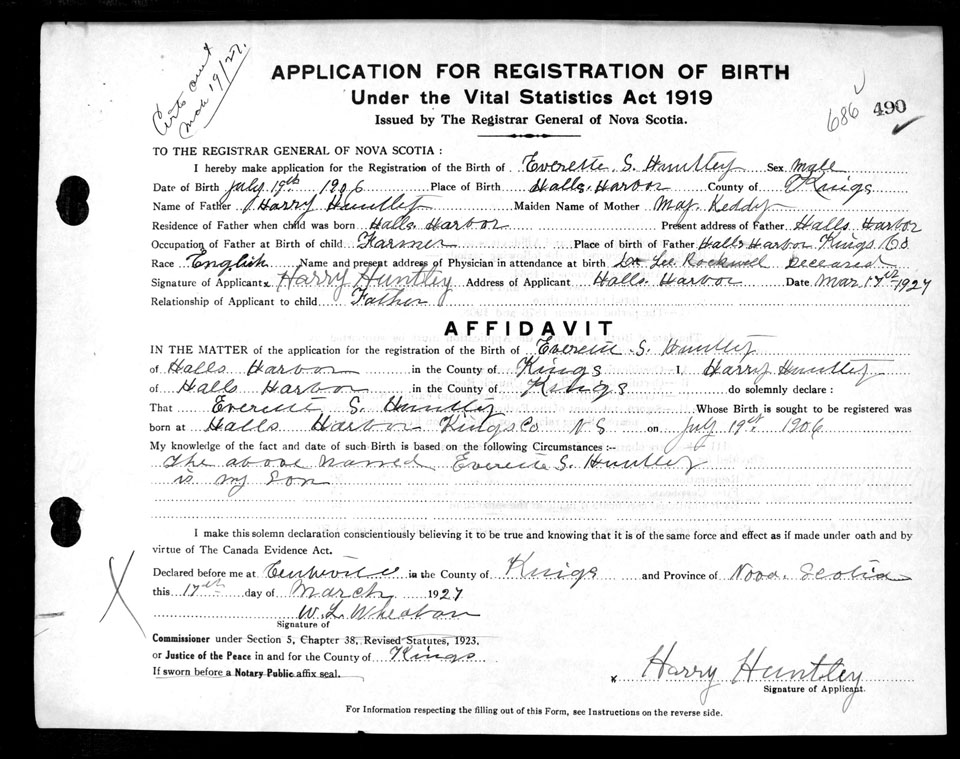 Certs out
Mch 19/27.
APPLICATION FOR REGISTRATION OF BIRTH
Under the Vital Statistics Act 1919
Issued by The Registrar General of Nova Scotia.
686
490
TO THE REGISTRAR GENERAL OF NOVA SCOTIA :
I hereby make application for the Registration of the Birth of Everette S. Huntley Sex Male
Date of Birth July 19th 1906 Place of Birth Halls Harbor County of Kings
Name of Father Harry Huntley Maiden Name of Mother May Keddy
Residence of Father when child was born Halls Harbor Present address of Father Halls Harbor
Occupation of Father at Birth of child Farmer Place of birth of Father Halls Harbor Kings Co
Race English Name and present address of Physician in attendance at birth Dr Lee Rockwell Deceased
Signature of Applicant x Harry Huntley Address of Applicant Halls Harbor Date Mar 17th 1927
Relationship of Applicant to child Father
AFFIDAVIT
IN THE MATTER of the application for the registration of the Birth of Everette S. Huntley
of Halls Harbor in the County of Kings I, Harry Huntley
of Halls Harbor in the County of Kings do solemnly declare :
That Everette S. Huntley Whose Birth is sought to be registered was
born at Halls Harbor Kings Co N S on July 19th 1906
My knowledge of the fact and date of such Birth is based on the following Circumstances :--
The above named Everette S. Huntley
is my Son
I make this solemn declaration conscientiously believing it to be true and knowing that it is of the same force and effect as if made under oath and by
virtue of The Canada Evidence Act.
Declared before me at Centreville in the County of Kings and Province of Nova Scotia
this 17th day of March 1927
W. L. Wheaton
Signature of
Commissioner under Section 5, Chapter 38, Revised Statutes, 1923.
or Justice of the Peace in and for the County of Kings
If sworn before a Notary Public affix seal.
x Harry Huntley
Signature of Applicant.
For Information respecting the filling out of this Form, see Instructions on the reverse side.